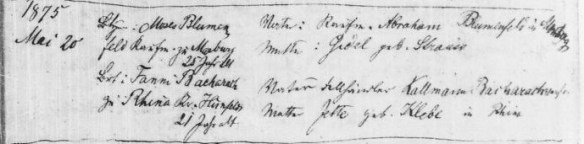 1875
Mai 20
Moses Blumen
feld Kaufm. zu Marburg
25 Jahr alt
Fanni Bacharach
zu Rhina Kr. Hünfeld
21 Jahr alt
Vater: Kaufm. Abraham Blumenfeld
Mutter: geb. Strauss
Vater Kallmann Bacharach
Mutter Jette geb. Klebe in Rhina